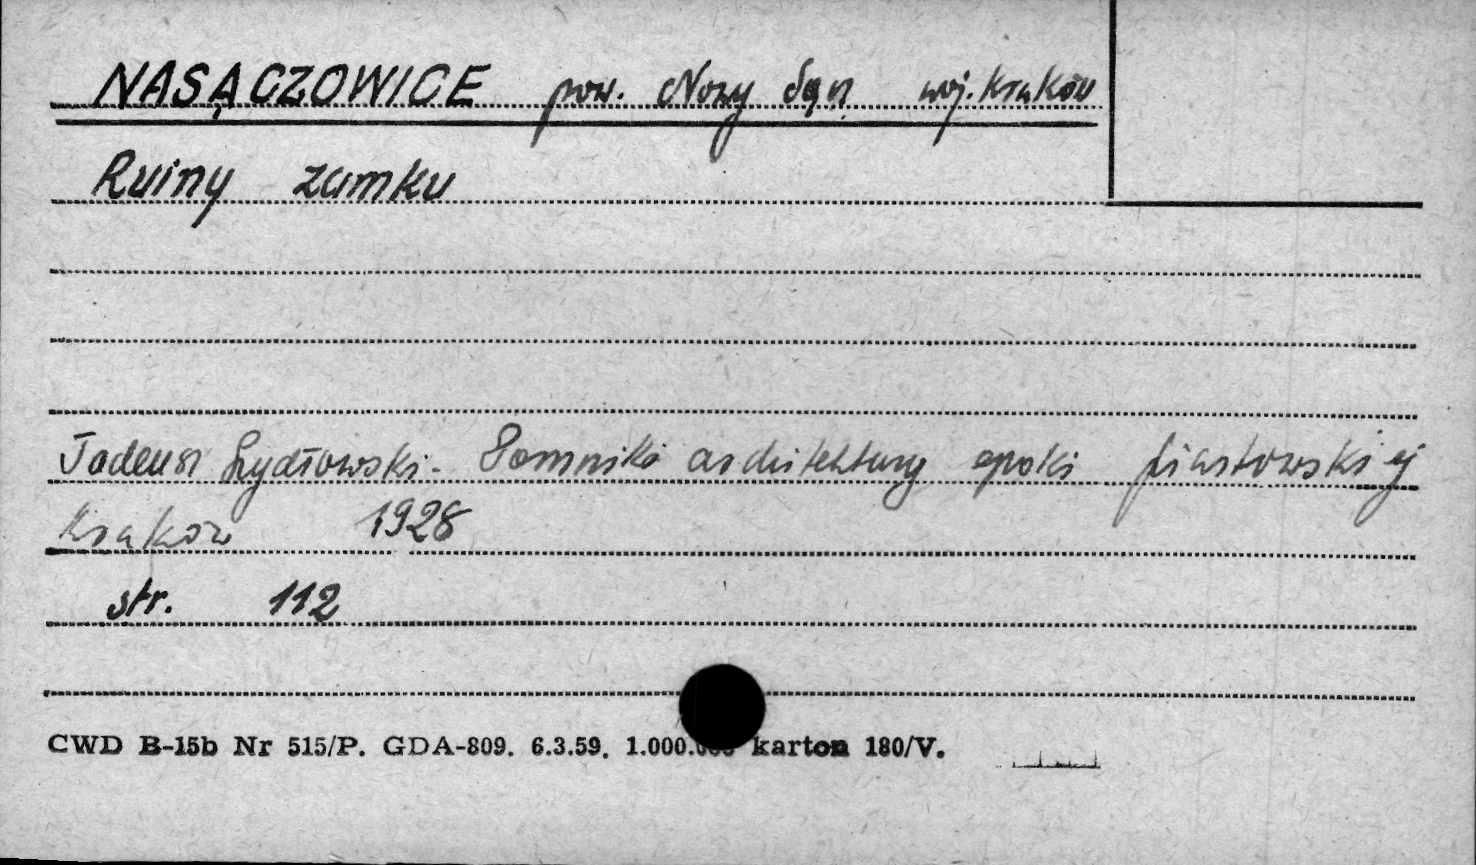 NASĄCZOWICE pow. Nowy Sącz woj. Kraków
Ruiny zamku
Tadeusz Szydłowski - Pomniki architektury epoki piastowskiej
Kraków 1928
str. 112
CWD B-15b Nr 515/P. GDA-809. 6.3.59. 1.000.000 karton 180/V.